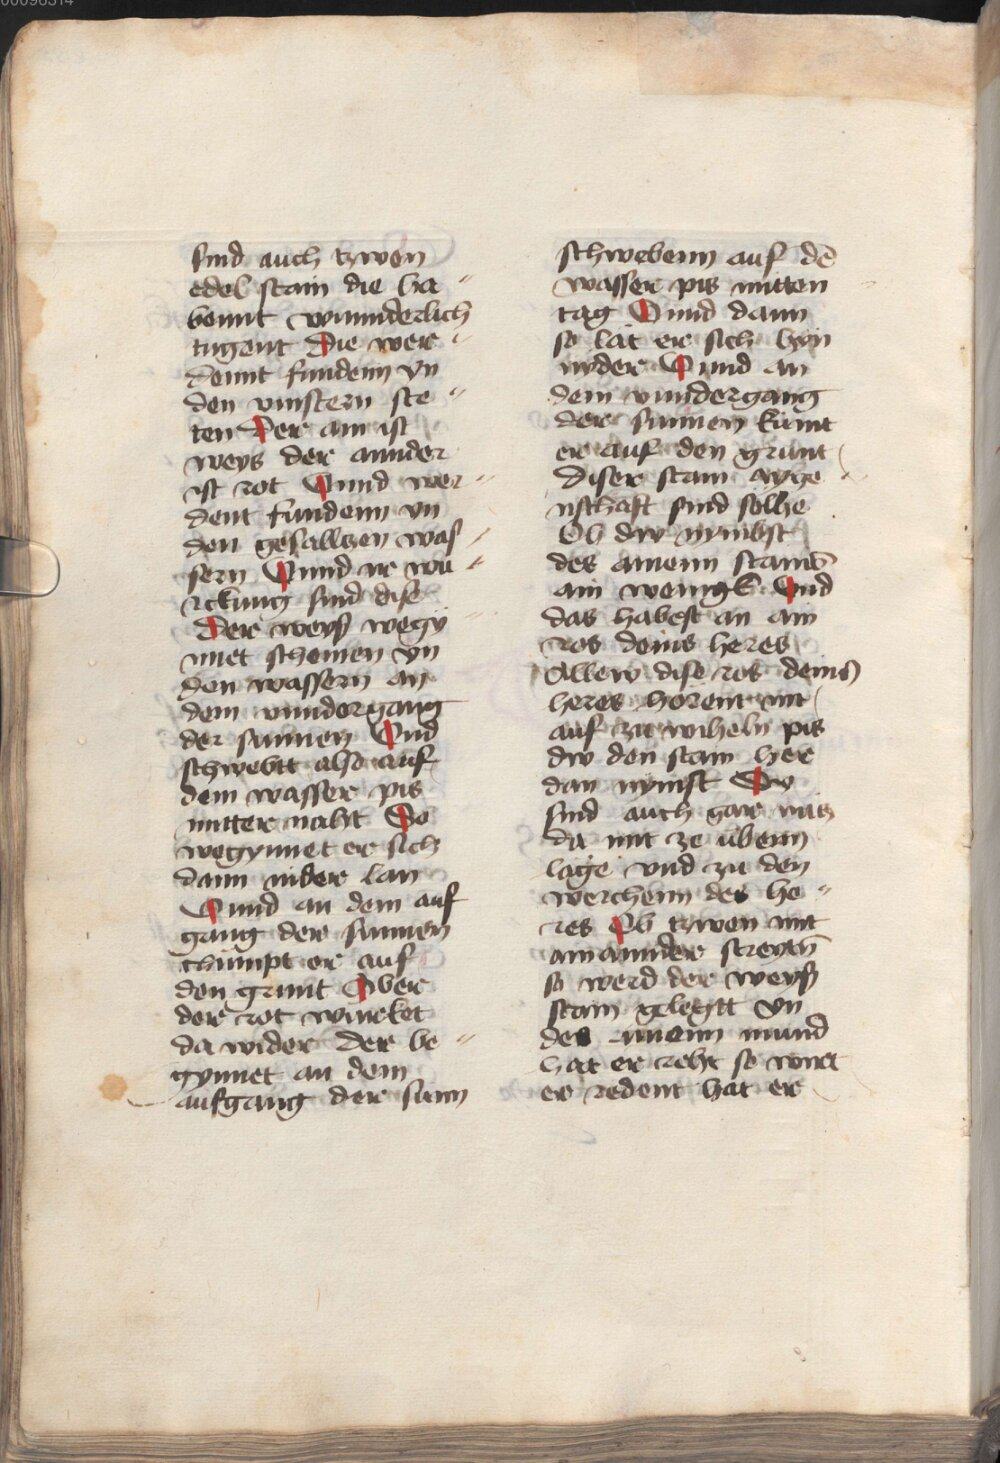 00096314
sind auch tzwen
edel stain die ha
bennt wnnderlich
tugent Die wer
dennt fundenn yn
den vinstern ste
ten Der ain ist
weys der annder
ist rot Vnnd wer
dent fundenn yn
den gesalltzen was
sern Vnnd ir wu
rckung sind dise
Der weyß wegy
nnet scheinen yn
den wassern an
dem vnndergang
der sunnen Vnd
schwebtt also auf
dem wasser pis
mitter naht So
wegynnet er sich
dann nider lan
Vnnd an dem auf
gang der sunnen
chümpt er auf
den grunt Aber
der rot wurcket
da wider Der be
gynnet an dem
aufgang der sunn
schwebenn auf dē
wasser pis mitten
tag Vnnd dann
so lät er sich hyn
nyder Vnnd an
dem vnndergang
der sunnen kümt
er auf den grunt
Diser stain ayge
nschaft sind solhe
Ob dw nymbst
des ainenn stains
ain wenig Vnd
das habest an ain
ros deins heres
Allew dise ros deins
heres horent nit
auf zu wiheln pis
dw den stain her
dan nymst Sy
sind auch gar nütz
da mit ze übenn
läge vnd zu den
werchenn des he
res Ob tzwen mit
ainannder streytn̄
so werd der weyß
stain gelegtt yn
des ainenn mund
hat er reht so wirt
er redent hat er